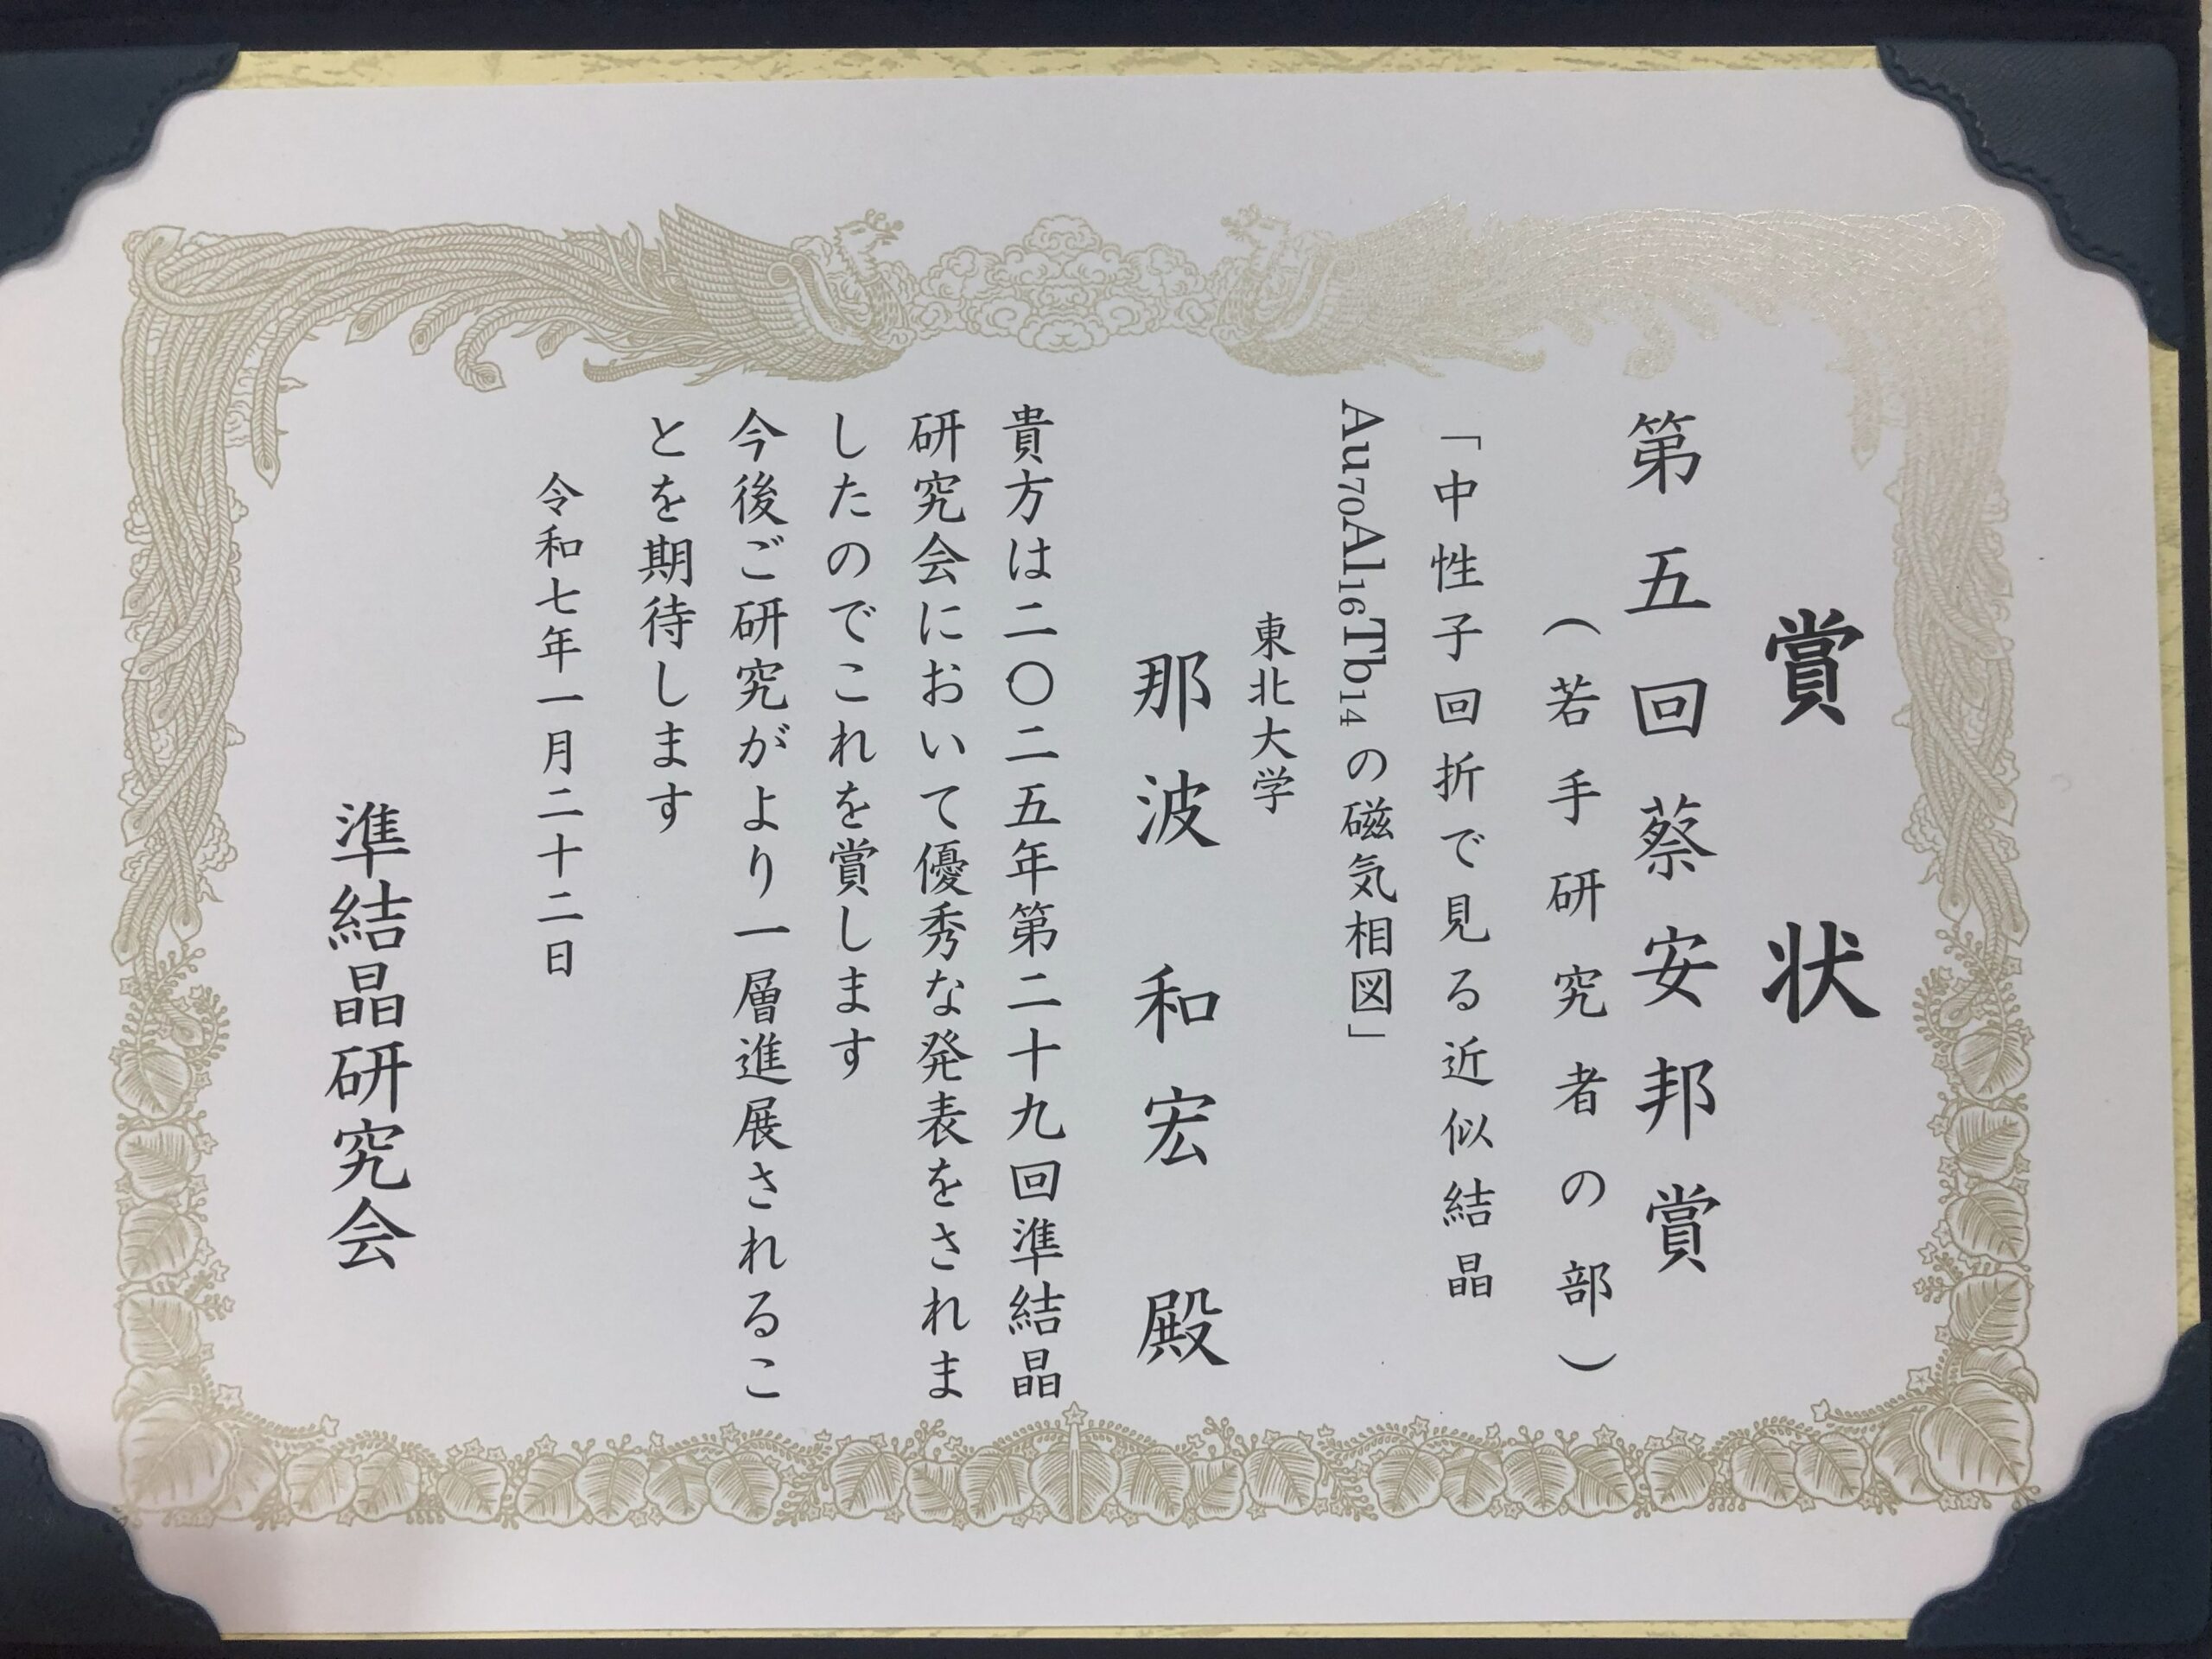 賞状
第五回蔡安邦賞
（若手研究者の部）
「中性子回折で見る近似結晶
Au₇₀Al₁₆Tb₁₄の磁気相図」
東北大学
那波和宏 殿
貴方は二〇二五年第二十九回準結晶
研究会において優秀な発表をされま
したのでこれを賞します
今後ご研究がより一層進展されるこ
とを期待します
令和七年一月二十二日
準結晶研究会